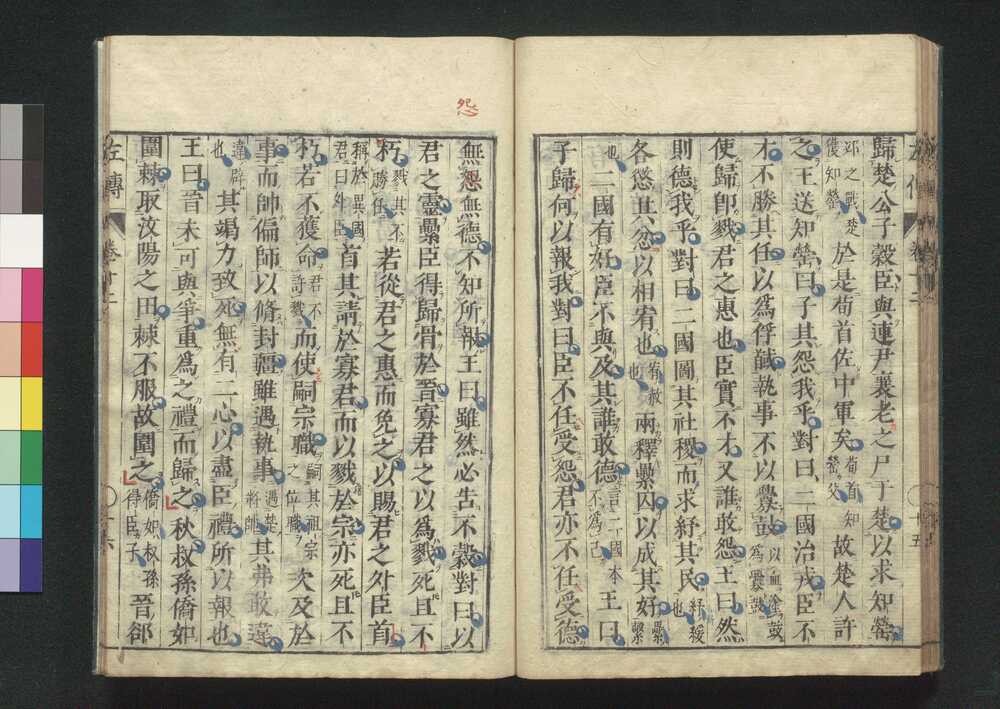 歸楚公子穀臣與連尹襄老之尸于楚以求知罃
邲之戰楚獲知罃於是荀首佐中軍矣荀首知罃父故楚人許
之王送知罃曰子其怨我乎對曰二國治戎臣不
才不勝其任以爲俘馘執事不以釁鼓以血塗鼓爲釁鼓
使歸卽戮君之惠也臣實不才又誰敢怨王曰然
則德我乎對曰二國圖其社稷而求紓其民紓緩也
各懲其忿以相宥也宥赦也兩釋纍囚以成其好纍繫
也二國有好臣不與及其誰敢德言二國本不爲己王曰
子歸何以報我對曰臣不任受怨君亦不任受德
怨
無怨無德不知所報王曰雖然必告不穀對曰以
君之靈纍臣得歸骨於晉寡君之以爲戮死且不
朽戮其不勝任若從君之惠而免之以賜君之外臣首
稱於異國君曰外臣首其請於寡君而以戮於宗亦死且不
朽若不獲命君不許戮而使嗣宗職嗣其祖宗之位職次及於
事而帥偏師以脩封疆雖遇執事遇楚將帥其弗敢違
違辟也其竭力致死無有二心以盡臣禮所以報也
王曰晉未可與爭重爲之禮而歸之秋叔孫僑如
圍棘取汶陽之田棘不服故圍之僑如叔孫得臣子晉郤
左傳 卷十二 十六